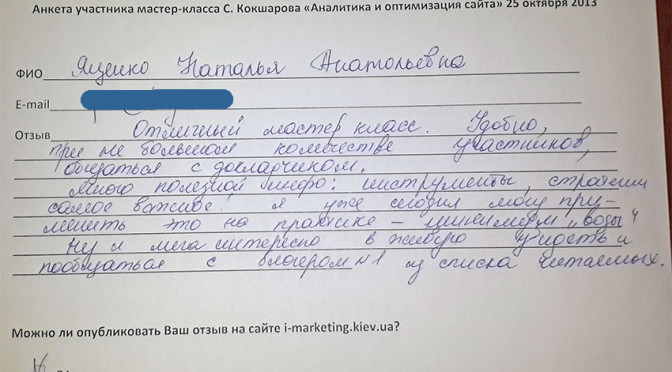 Анкета участника мастер-класса С. Кокшарова «Аналитика и оптимизация сайта» 25 октября 2013
ФИО Ященко Наталья Анатольевна
E-mail
Отзыв Отличный мастер класс. Удобно,
при не большом количестве участников,
общаться с докладчиком.
Много полезной инфо: инструменты, стратегии
самое важное: я уже сегодня могу при-
менить это на практике – минимум „воды"
Ну и мега интересно в живую увидеть и
пообщаться с блогером №1 из списка читаемых.
Можно ли опубликовать Ваш отзыв на сайте i-marketing.kiev.ua?